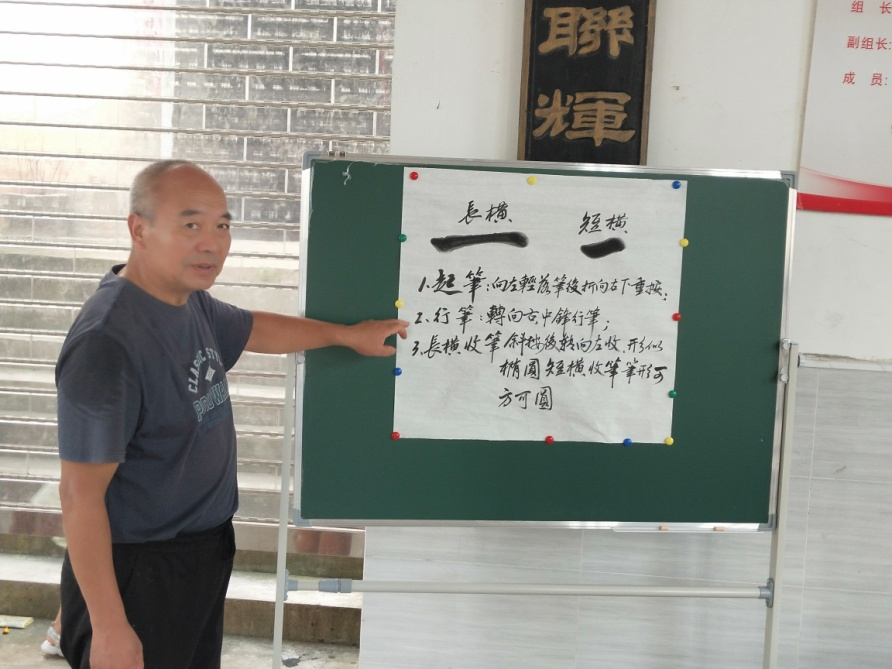 聯
輝
組 长
副组长:
成 员:
長橫 短橫
1.起筆:向左輕落筆後折向右下重按;
2.行筆:轉向右中鋒行筆;
3.長橫收筆斜按後轉向左收,形似
橢圓短橫收筆筆形可
方可圓
CLASSIC STY